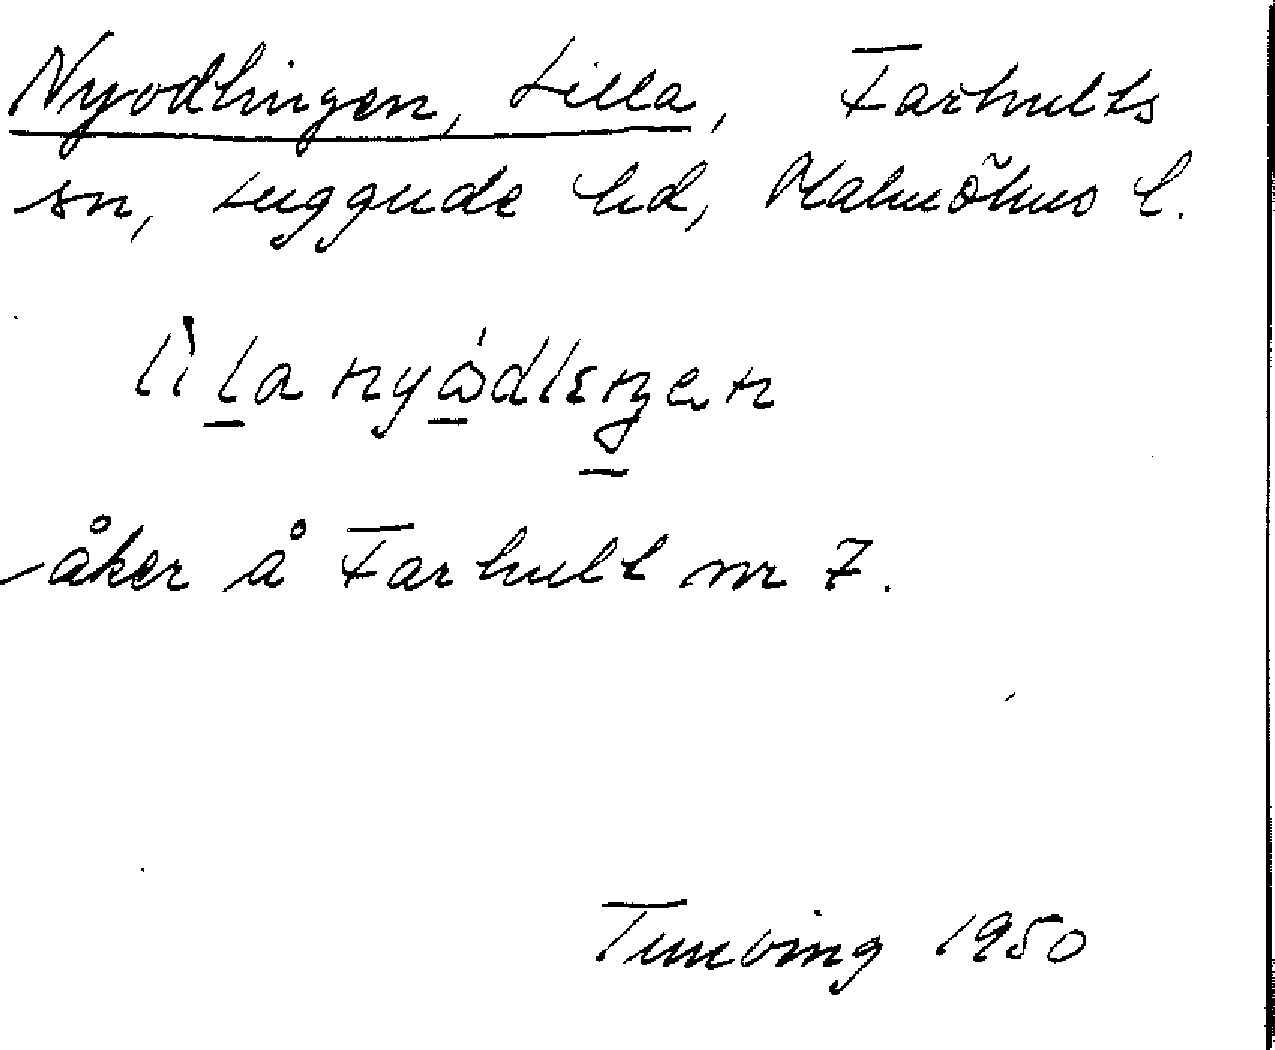 Nyodlingen, Lilla, Farhults
sn, Luggude hd, Malmöhus l.
åker å Farhult nr 7.
Tuneving 1950